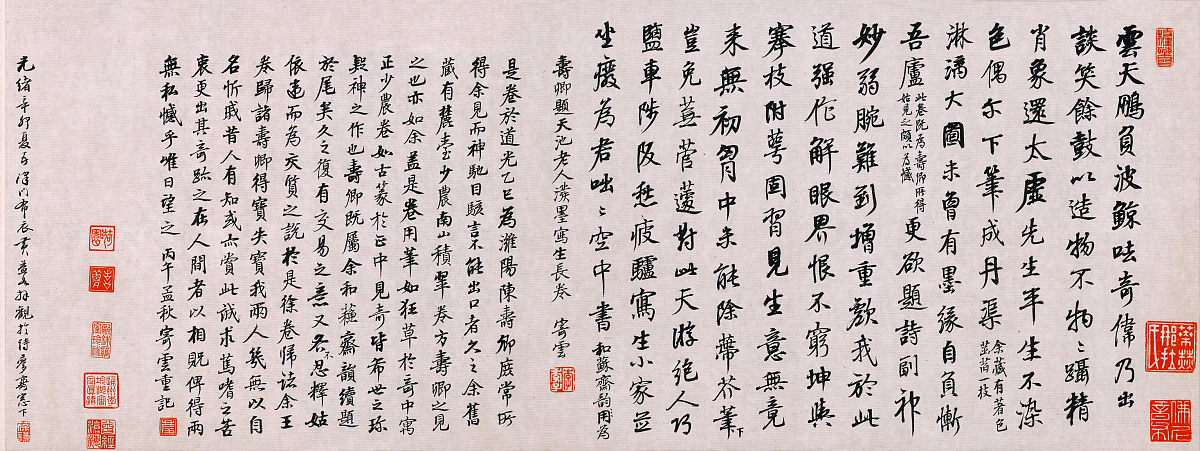 雲天鵬負波鯨呿奇偉乃出
談笑餘鼓以造物不物物躡精
肖象還太虛先生平生不染
色偶尔下筆成丹渠余藏有著色芝一枝
淋漓大圖未曾有墨緣自負慚
吾廬此卷既為壽卿所得始見之頗以為憾更欲題詩副神
妙弱腕難到增重顏我於此
道强作解眼界恨不窮坤輿
搴枝附萼固習見生意無竟
來無初胷中未能除蔕芥筆下
豈免蕪菅蘧對此天游絕人巧
鹽車陟阪愁疲驢寫生小家並
坐廢為君咄咄空中書和蘇齋韵用為
壽卿題天池老人潑墨寫生長卷 寄雲
是卷於道光乙巳為濰陽陳壽卿庶常所
得余見而神馳目駭言不能出口者久之余舊
藏有麓臺少農南山積翠卷方壽卿之見
之也亦如余蓋是卷用筆如狂草於奇中寓
正少農卷如古篆於正中見奇皆希世之珎
契神之作也壽卿既屬余和蘓齋韵續題
於尾矣久之復有交易之意又各不忍釋姑
依違而為交質之說於是徐卷歸諸余王
卷歸諸壽卿得寶失寶我兩人幾無以自
名忻戚昔人有知或亦賞此誠求篤嗜之苦
衷更出其奇跡之在人間者以相貺俾得兩
無私憾乎惟日望之 丙午孟秋寄雲重記
光緒辛卯夏